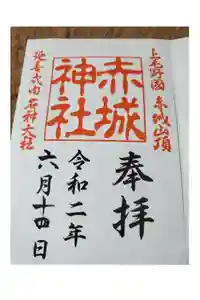 上野國 赤城山頂
奉拝
赤城神社
令和二年
六月十四日
延喜式内 名神大社